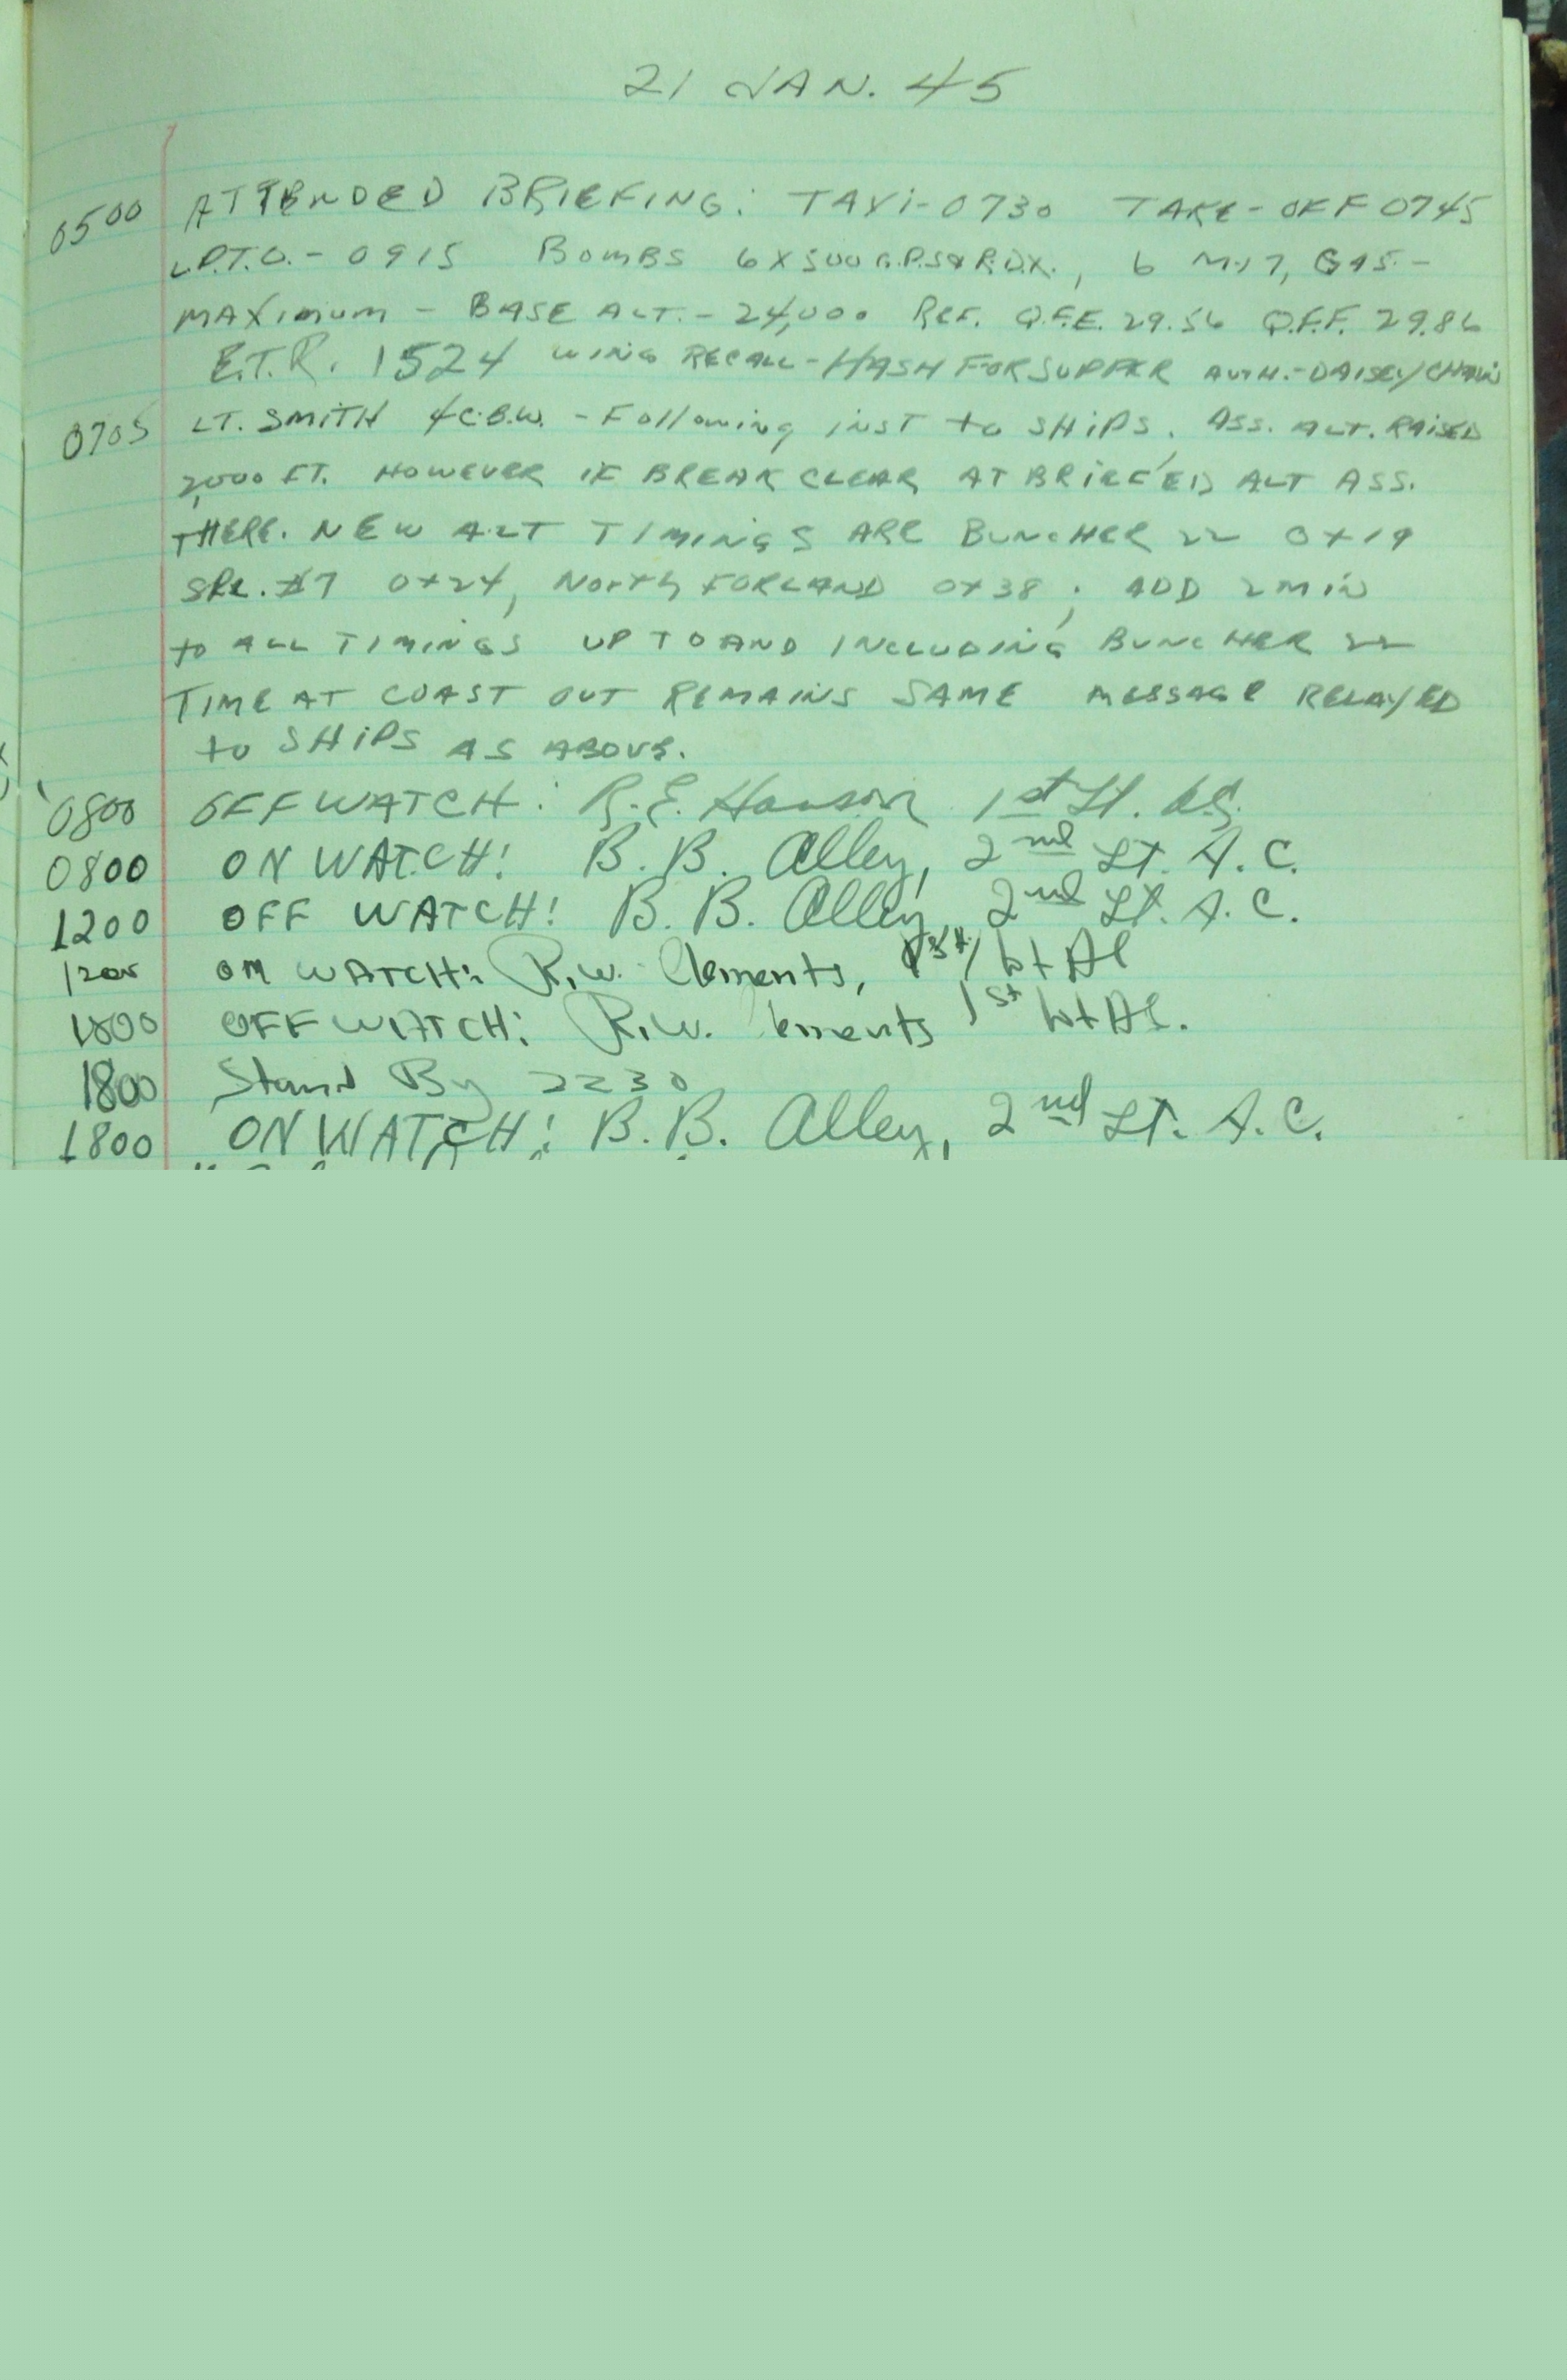 21 JAN. 45
0500 ATTENDED BRIEFING: TAXI-0730 TAKE-OFF 0745
L.P.T.O. - 0915 BOMBS 6X500 G.P.S & R.D.X., 6 M-17, GAS. -
MAXIMUM - BASE ALT. - 24,000 REF. Q.F.E. 29.56 Q.F.F. 29.86
E.T.R. 1524 WING RECALL - HASH FOR SUPPER AUTH. - DAISEY CHAIN
0705 LT. SMITH 4C.B.W. - Following INST to SHIPS. ASS. ALT. RAISED
2,000 FT. HOWEVER IF BREAK CLEAR AT BRIEFED ALT ASS.
THERE. NEW ALT TIMINGS ARE BUNCHER 22 0+19
SPL. #7 0+24, NORTH FORLAND 0+38; ADD 2 MIN
to ALL TIMINGS UP TO AND INCLUDING BUNCHER 22
TIME AT COAST OUT REMAINS SAME MESSAGE RELAYED
to SHIPS AS ABOVE.
0800 OFF WATCH: R.E. Hanson 1st Lt.
0800 ON WATCH! B. B. Alley, 2nd Lt. A.C.
1200 OFF WATCH! B. B. Alley, 2nd Lt. A.C.
1200 ON WATCH: R.W. Clements, 1st Lt AC
1800 OFF WATCH: R.W. Clements 1st Lt AC.
1800 Stand By 2230
1800 ON WATCH: B.B. Alley, 2nd Lt. A.C.